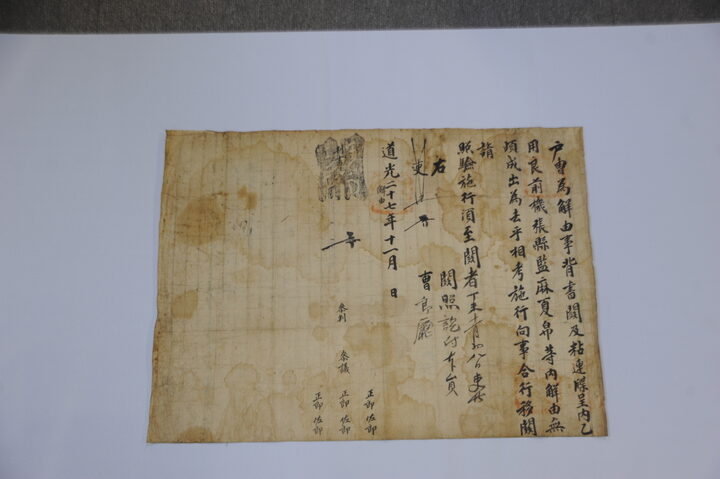 戶曹爲解由事背書關及粘連牒呈內乙
用良前機張縣監麻夏帛等內解由無
頉成出爲去乎相考施行向事合行移關
請
照驗施行須至關者
右關
吏曹
關照訖付
曹郎廳
道光二十七年十一月 日
解由
參判 參議
正郎 佐郎
正郎 佐郎
正郎 佐郎